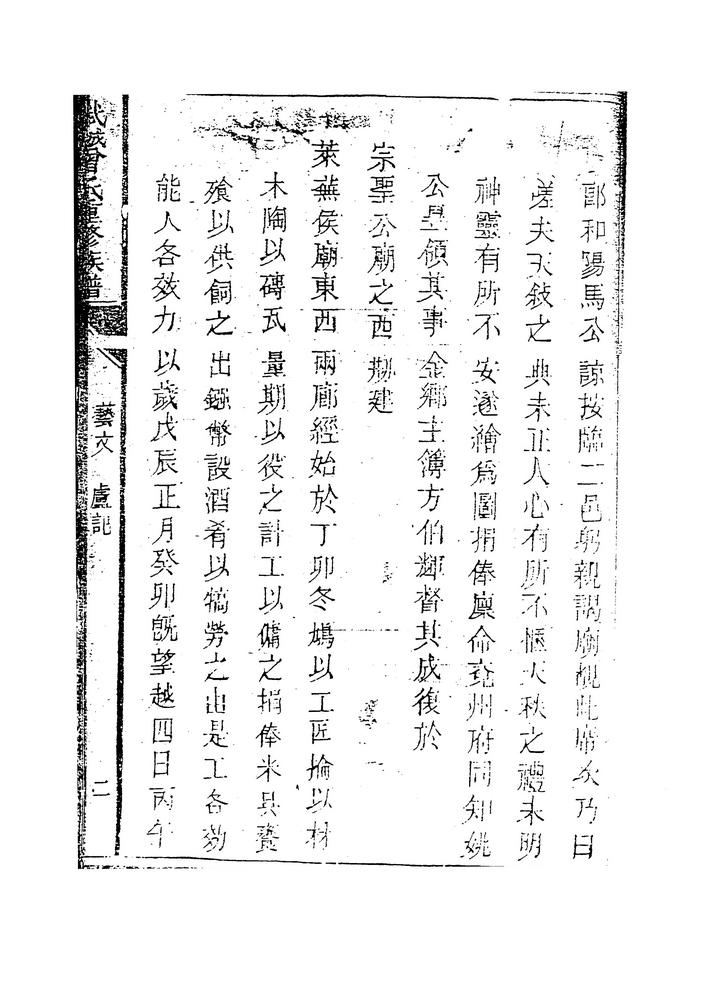 部和陽馬公諒按臨二邑躬親謁廟覩此席次乃曰
嗟夫天敍之典未正人心有所不愜天秩之禮未明
神靈有所不安遂繪為圖捐俸廩命兗州府同知姚
公昱領其事金鄉主簿方伯輝督其成復於
宗聖公廟之西剏建
萊蕪侯廟東西兩廊經始於丁卯冬鳩以工匠掄以材
木陶以磚瓦量期以役之計工以傭之捐俸米具饔
飧以供飼之出鏹幣設酒肴以犒勞之由是工各効
能人各效力以歲戊辰正月癸卯旣望越四日丙午
武城曾氏重修族譜
藝文 盧記
二